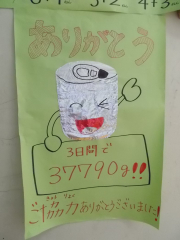 ありがとう
3日間で
37790g!!
ご協力ありがとうございました!